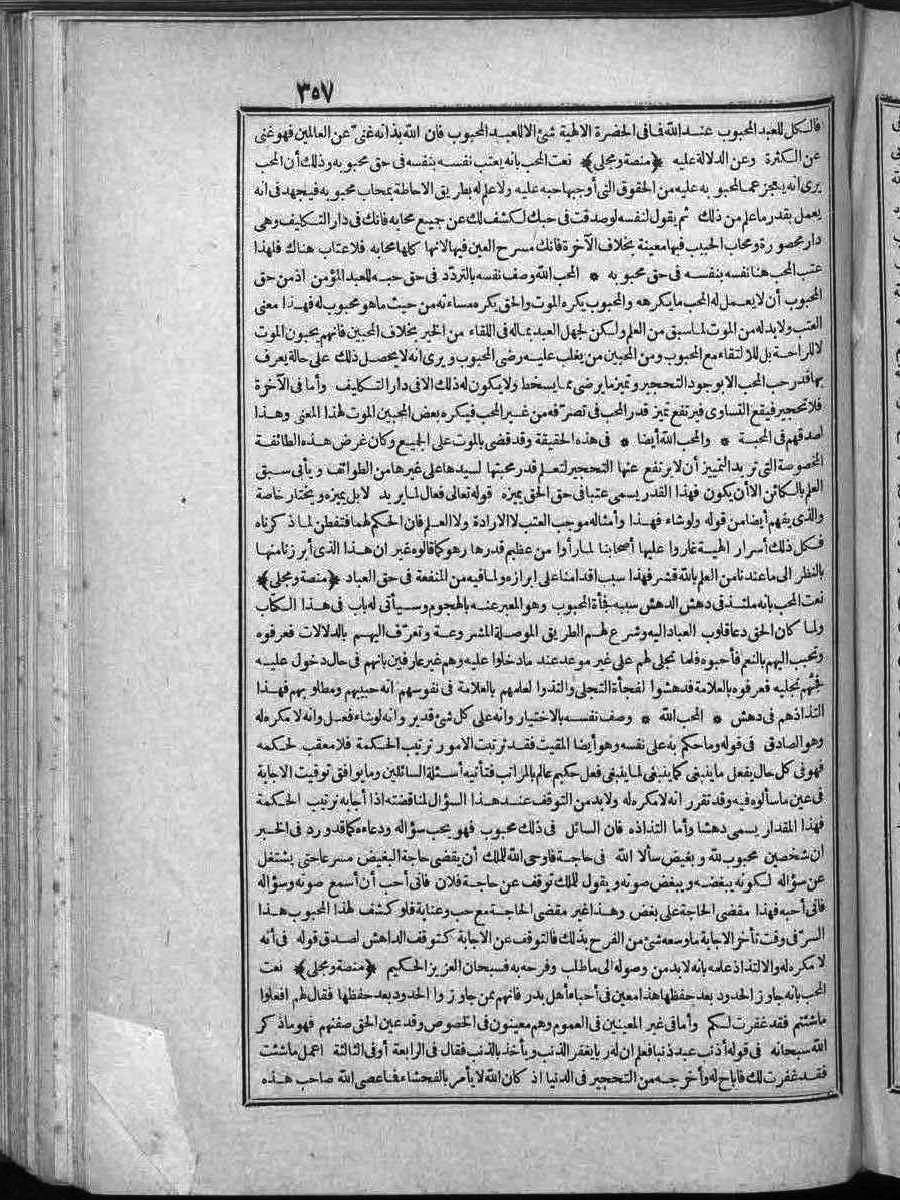 ٣٥٧
فالكل للعبد المحبوب عند الله فما فى الحضرة الالهية شئ الا للعبد المحبوب فان الله بذاته غنىّ عن العالمين فهو غنى
عن الكثرة وعن الدلالة عليه ﴿منصة ومجلى﴾ نعت المحب بانه يعتب نفسه بنفسه فى حق محبوبه وذلك أن المحب
يرى انه يعجز عما لمحبوبه عليه من الحقوق التى أوجبها حبه عليه ولا علم له بطريق الاحاطة بمحاب محبوبه فيجهد فى انه
يعمل بقدر ما علم من ذلك ثم يقول لنفسه لو صدقت فى حبك لكشف لك عن جميع محابه فانك فى دار التكليف وهى
دار محصورة ومحاب الحبيب فيها معينة بخلاف الآخرة فانك مسرح العين فيها لانها كلها محابه فلا عتاب هناك فلهذا
عتب المحب هنا نفسه بنفسه فى حق محبوبه * المحب الله وصف نفسه بالتردّد فى حق حبه للعبد المؤمن اذ من حق
المحبوب أن لا يعمل له المحب ما يكرهه والمحبوب يكره الموت والحق يكره مساءته من حيث ما هو محبوب له فهذا معنى
العتب ولا بدّ له من الموت لما سبق من العلم ولكن لجهل العبد بماله فى اللقاء من الخير بخلاف المحبين فانهم يحبون الموت
لا للراحة بل للالتقاء مع المحبوب ومن المحبين من يغلب عليه رضى المحبوب ويرى انه لا يحصل ذلك على حالة يعرف
بها قدر حب المحب الا بوجود التحجير وتميز ما يرضى مما يسخط ولا يكون له ذلك الا فى دار التكليف وأما فى الآخرة
فلا تحجير فيقع التساوى فيرتفع تميز قدر المحب فى تصرّفه من غير المحب فيكره بعض المحبين الموت لهذا المعنى وهذا
اصدقهم فى المحبة * والمحب الله أيضا * فى هذه الحقيقة وقد قضى بالموت على الجميع وكان غرض هذه الطائفة
المخصوصة التى تريد التمييز أن لا يرتفع عنها التحجير لتعلم قدر محبتها لسيدها على غيرها من الطوائف ويأبى سبق
العلم بالكائن الا أن يكون فهذا القدر يسمى عتبا فى حق الحق يميزه قوله تعالى فعال لما يريد لا بل يميزه ويختار خاصة
والذى يفهم أيضا من قوله ولو شاء فهذا وأمثاله موجب العتب لا الارادة ولا العلم فان الحكم لهما فتفطن لما ذكرناه
فكل ذلك أسرار الهية غاروا عليها أصحابنا لما رأوا من عظيم قدرها وهو كما قالوه غير ان هذا الذى أبرزنا منها
بالنظر الى ما عندنا من العلم بالله قشر فهذا سبب اقدامنا على ابرازه ولما فيه من المنفعة فى حق العباد ﴿منصة ومجلى﴾
نعت المحب بانه ملتذ فى دهش الدهش سببه فجأة المحبوب وهو المعبر عنه بالهجوم وسيأتى له باب فى هذا الكتاب
ولما كان الحق دعا قلوب العباد اليه وشرع لهم الطريق الموصلة المشروعة وتعرّف اليهم بالدلالات فعرفوه
وتحبب اليهم بالنعم فأحبوه فلما تجلى لهم على غير موعد عند ما دخلوا عليه وهم غير عارفين بانهم فى حال دخول عليه
فجئهم تجليه فعرفوه بالعلامة فدهشوا لفجأة التجلى والتذوا لعلمهم بالعلامة فى نفوسهم انه حبيبهم ومطلوبهم فهذا
التذاذهم فى دهش * المحب الله * وصف نفسه بالاختيار وانه على كل شئ قدير وانه لو شاء فعل وانه لا مكره له
وهو الصادق فى قوله وما حكم به على نفسه وهو أيضا المقيت فقد ترتبت الامور ترتيب الحكمة فلا معقب لحكمه
فهو فى كل حال يفعل ما ينبغى كما ينبغى لما ينبغى فعل حكيم عالم بالمراتب فتأتيه أسئلة السائلين وما يوافق توقيت الاجابة
فى عين ما سألوه فيه وقد تقرر انه لا مكره له ولا بد من التوقف عند هذا السؤال لمناقضته اذا أجابه ترتيب الحكمة
فهذا المقدار يسمى دهشا وأما التذاذه فان السائل فى ذلك محبوب فهو يحب سؤاله ودعاءه كما قد ورد فى الخبر
ان شخصين محبوب لله وبغيض سألا الله فى حاجة فاوحى الله للملك أن يقضى حاجة البغيض مسرعا حتى يشتغل
عن سؤاله لكونه يبغضه ويبغض صوته ويقول للملك توقف عن حاجة فلان فانى أحب أن أسمع صوته وسؤاله
فانى أحبه فهذا مقضى الحاجة على بغض وهذا غير مقضى الحاجة مع حب وعناية فلو كشف لهذا المحبوب هذا
السرّ فى وقت تأخر الاجابة ما وسعه شئ من الفرح بذلك فالتوقف عن الاجابة كتوقف الداهش لصدق قوله فى أنه
لا مكره له والالتذاذ علمه بانه لا بد من وصوله الى ما طلب وفرحه به فسبحان العزيز الحكيم ﴿منصة ومجلى﴾ نعت
المحب بانه جاوز الحدود بعد حفظها هذا معين فى أحباء أهل بدر فانهم ممن جاوزوا الحدود بعد حفظها فقال لهم افعلوا
ما شئتم فقد غفرت لكم وأما فى غير المعينين فى العموم وهم معينون فى الخصوص وقد عين الحق صفتهم فهو ما ذكر
الله سبحانه فى قوله أذنب عبد ذنبا فعلم ان له ربا يغفر الذنب ويأخذ بالذنب فقال فى الرابعة أو فى الثالثة اعمل ما شئت
فقد غفرت لك فاباح له وأخرجه من التحجير فى الدنيا اذ كان الله لا يأمر بالفحشاء فما عصى الله صاحب هذه